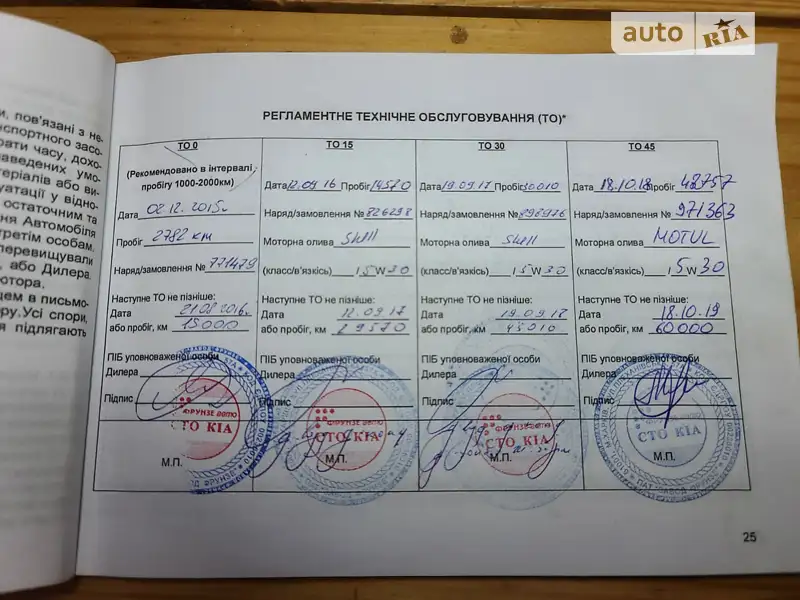 auto RIA
и, пов'язані з не-
нспортного засо-
рати часу, дохо-
наведених умо-
теріалів або ви-
уатації у відно-
остаточним та
ня Автомобіля
ретім особам.
перевищували
, або Дилера.
ютора.
цем в письмо-
ру. Усі спори,
я підлягають
РЕГЛАМЕНТНЕ ТЕХНІЧНЕ ОБСЛУГОВУВАННЯ (ТО)*
ТО 0
(Рекомендовано в інтервалі
пробігу 1000-2000км)
Дата 02.12.2015г
Пробіг 2782 км
Наряд/замовлення № 771479
Наступне ТО не пізніше:
Дата 21.08.2016г.
або пробіг, км 15000
ПІБ уповноваженої особи
Дилера
Підпис
ФРУНЗЕ авто
СТО КІА
М.П.
ТО 15
Дата 12.09.16 Пробіг 14570
Наряд/замовлення № 826298
Моторна олива Shell
(класс/в'язкість) 5W30
Наступне ТО не пізніше:
Дата 12.09.17
або пробіг, км 29570
ПІБ уповноваженої особи
Дилера
Підпис
ФРУНЗЕ авто
СТО КІА
М.П.
ТО 30
Дата 19.09.17 Пробіг 30010
Наряд/замовлення № 898976
Моторна олива Shell
(класс/в'язкість) 5W30
Наступне ТО не пізніше:
Дата 19.09.18
або пробіг, км 45010
ПІБ уповноваженої особи
Дилера
Підпис
ФРУНЗЕ авто
СТО КІА
М.П.
ТО 45
Дата 18.10.18 Пробіг 42757
Наряд/замовлення № 971363
Моторна олива MOTUL
(класс/в'язкість) 5W30
Наступне ТО не пізніше:
Дата 18.10.19
або пробіг, км 60000
ПІБ уповноваженої особи
Дилера
Підпис
СТО КІА
М.П.
25